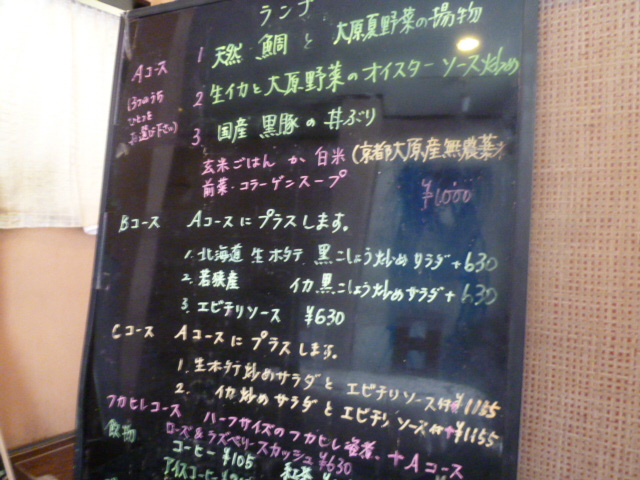 ランチ
Aコース
(3つのうち
ひとつを
お選び下さい)
1 天然 鯛と 大原夏野菜の揚物
2 生イカと大原野菜のオイスターソース炒め
3 国産 黒豚の丼ぶり
玄米ごはん か 白米 (京都大原産無農薬米
前菜・コラーゲンスープ
¥1,000
Bコース Aコースにプラスします。
1. 北海道 生ホタテ 黒こしょう炒めサラダ +630
2. 若狭産 イカ 黒こしょう炒めサラダ + 630
3. エビチリソース ¥630
Cコース Aコースにプラスします。
1. 生ホタテ炒めサラダと エビチリソース付 ¥1155
2. イカ炒めサラダと エビチリソース付 ¥1155
フカヒレコース ハーフサイズのフカヒレ姿煮、+Aコース
飲物 ローズ&ラズベリースカッシュ ¥630
コーヒー ¥105 紅茶
アイスコーヒー